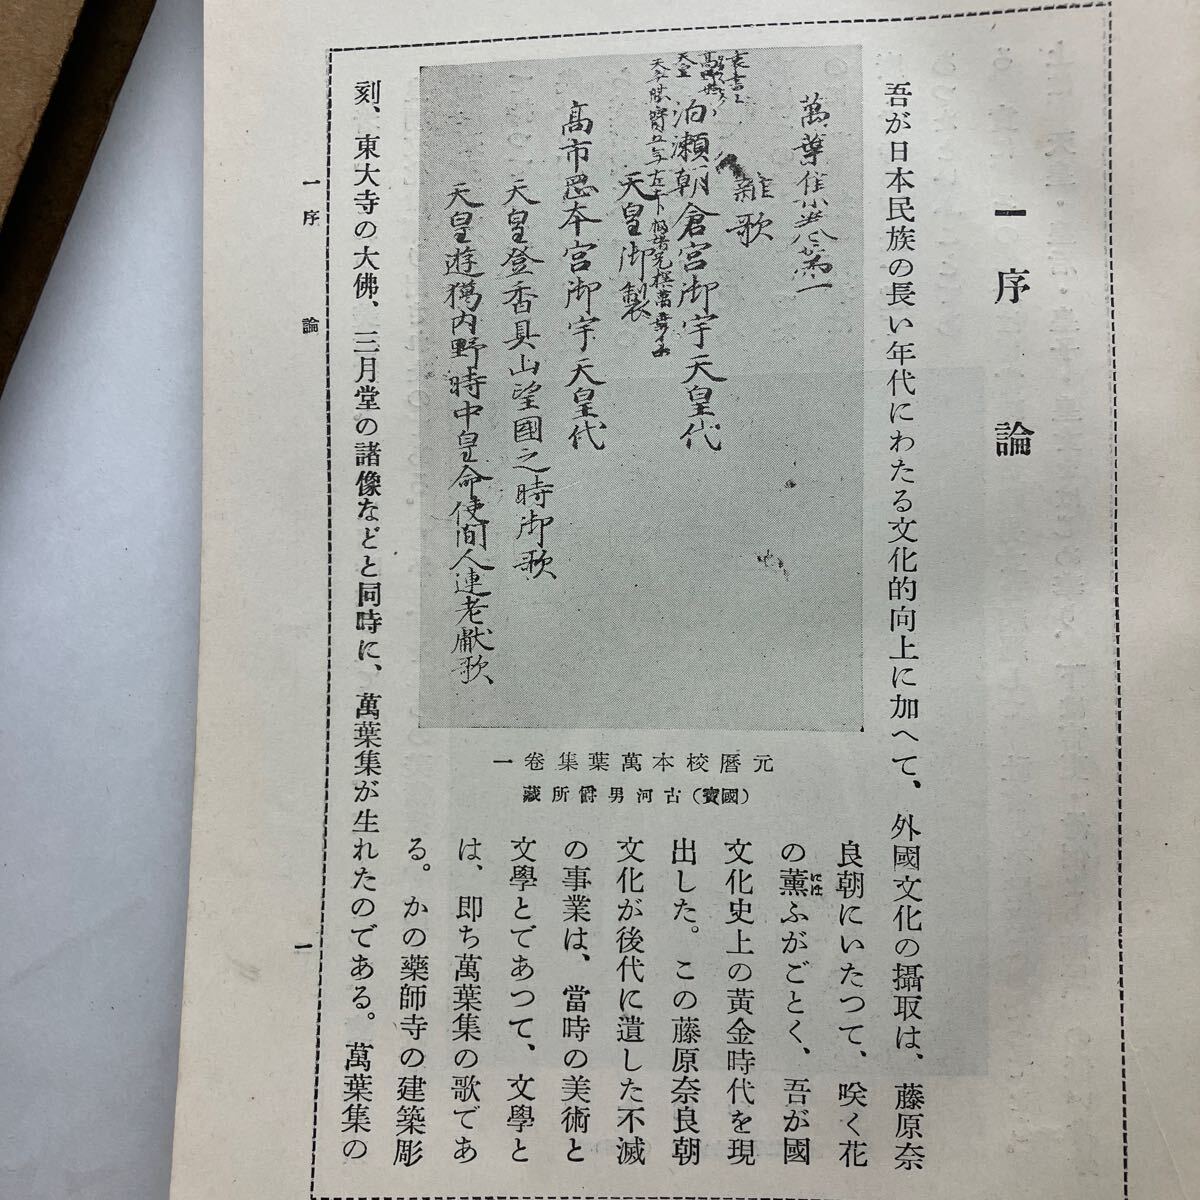 一 序 論
吾が日本民族の長い年代にわたる文化的向上に加へて、外國文化の攝取は、藤原奈
良朝にいたつて、咲く花
の薫ふがごとく、吾が國
にほ
文化史上の黃金時代を現
出した。この藤原奈良朝
文化が後代に遺した不滅
の事業は、當時の美術と
文學とであつて、文學と
は、卽ち萬葉集の歌であ
る。かの藥師寺の建築彫
刻、東大寺の大佛、三月堂の諸像などと同時に、萬葉集が生れたのである。萬葉集の
萬葉集卷第一
雜歌
泊瀨朝倉宮御宇天皇代
天皇御製
高市岡本宮御宇天皇代
天皇登香具山望國之時御歌
天皇遊獦内野時中皇命使間人連老獻歌
元曆校本萬葉集卷一
(國寶)古河男爵所藏
一 序 論
一